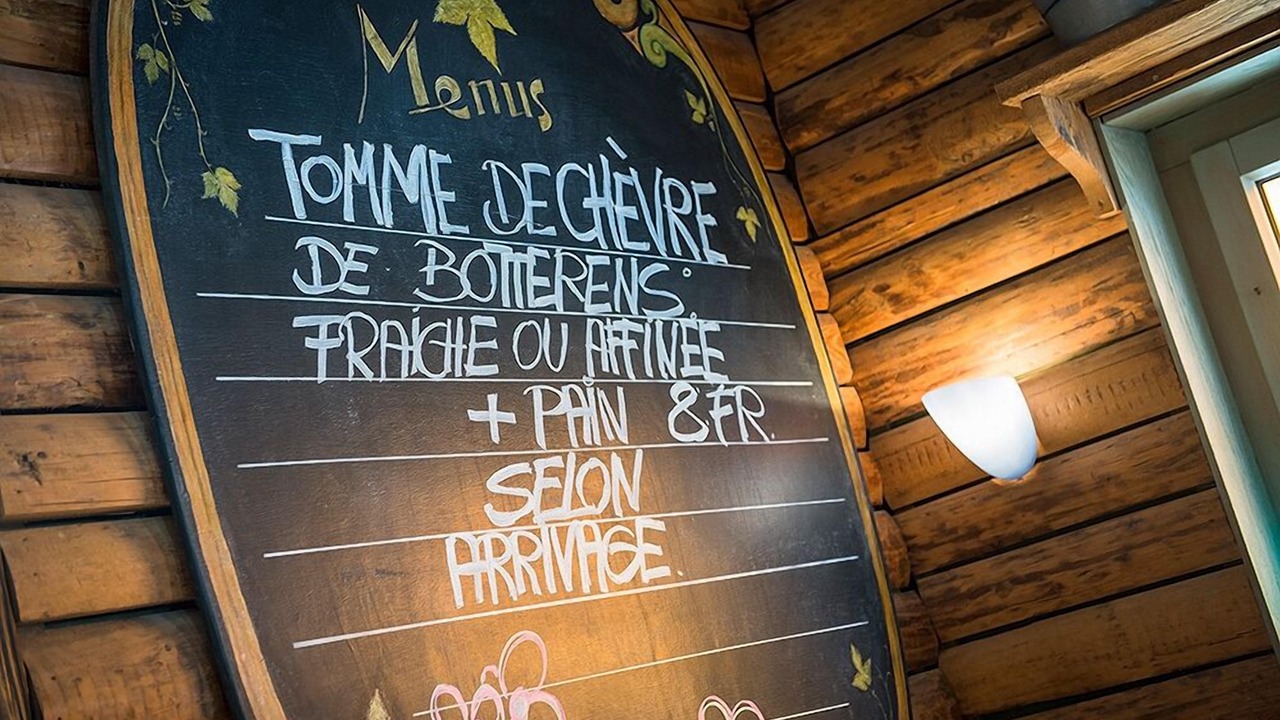 Menus
TOMME DE CHÈVRE
DE BOTTERENS.
FRAÎCHE OU AFFINÉE
+ PAIN 8 FR.
SELON
ARRIVAGE.